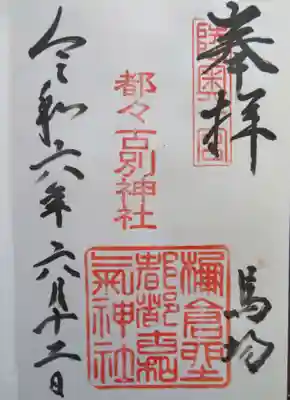 奉拝
陸奥一宮
馬場
都々古別神社
都都古和
氣神社
令和六年六月十二日